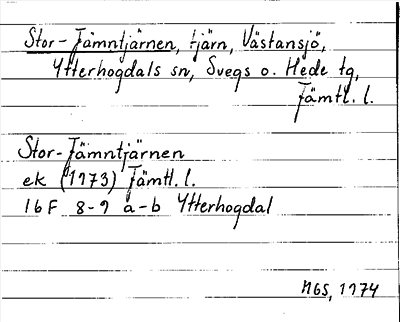 Stor-Jämntjärnen, tjärn, Västansjö,
Ytterhogdals sn, Svegs o. Hede tg,
Jämtl. l.
Stor-Jämntjärnen
ek (1973) Jämtl. l.
16F 8-9 a-b Ytterhogdal
NGS, 1974